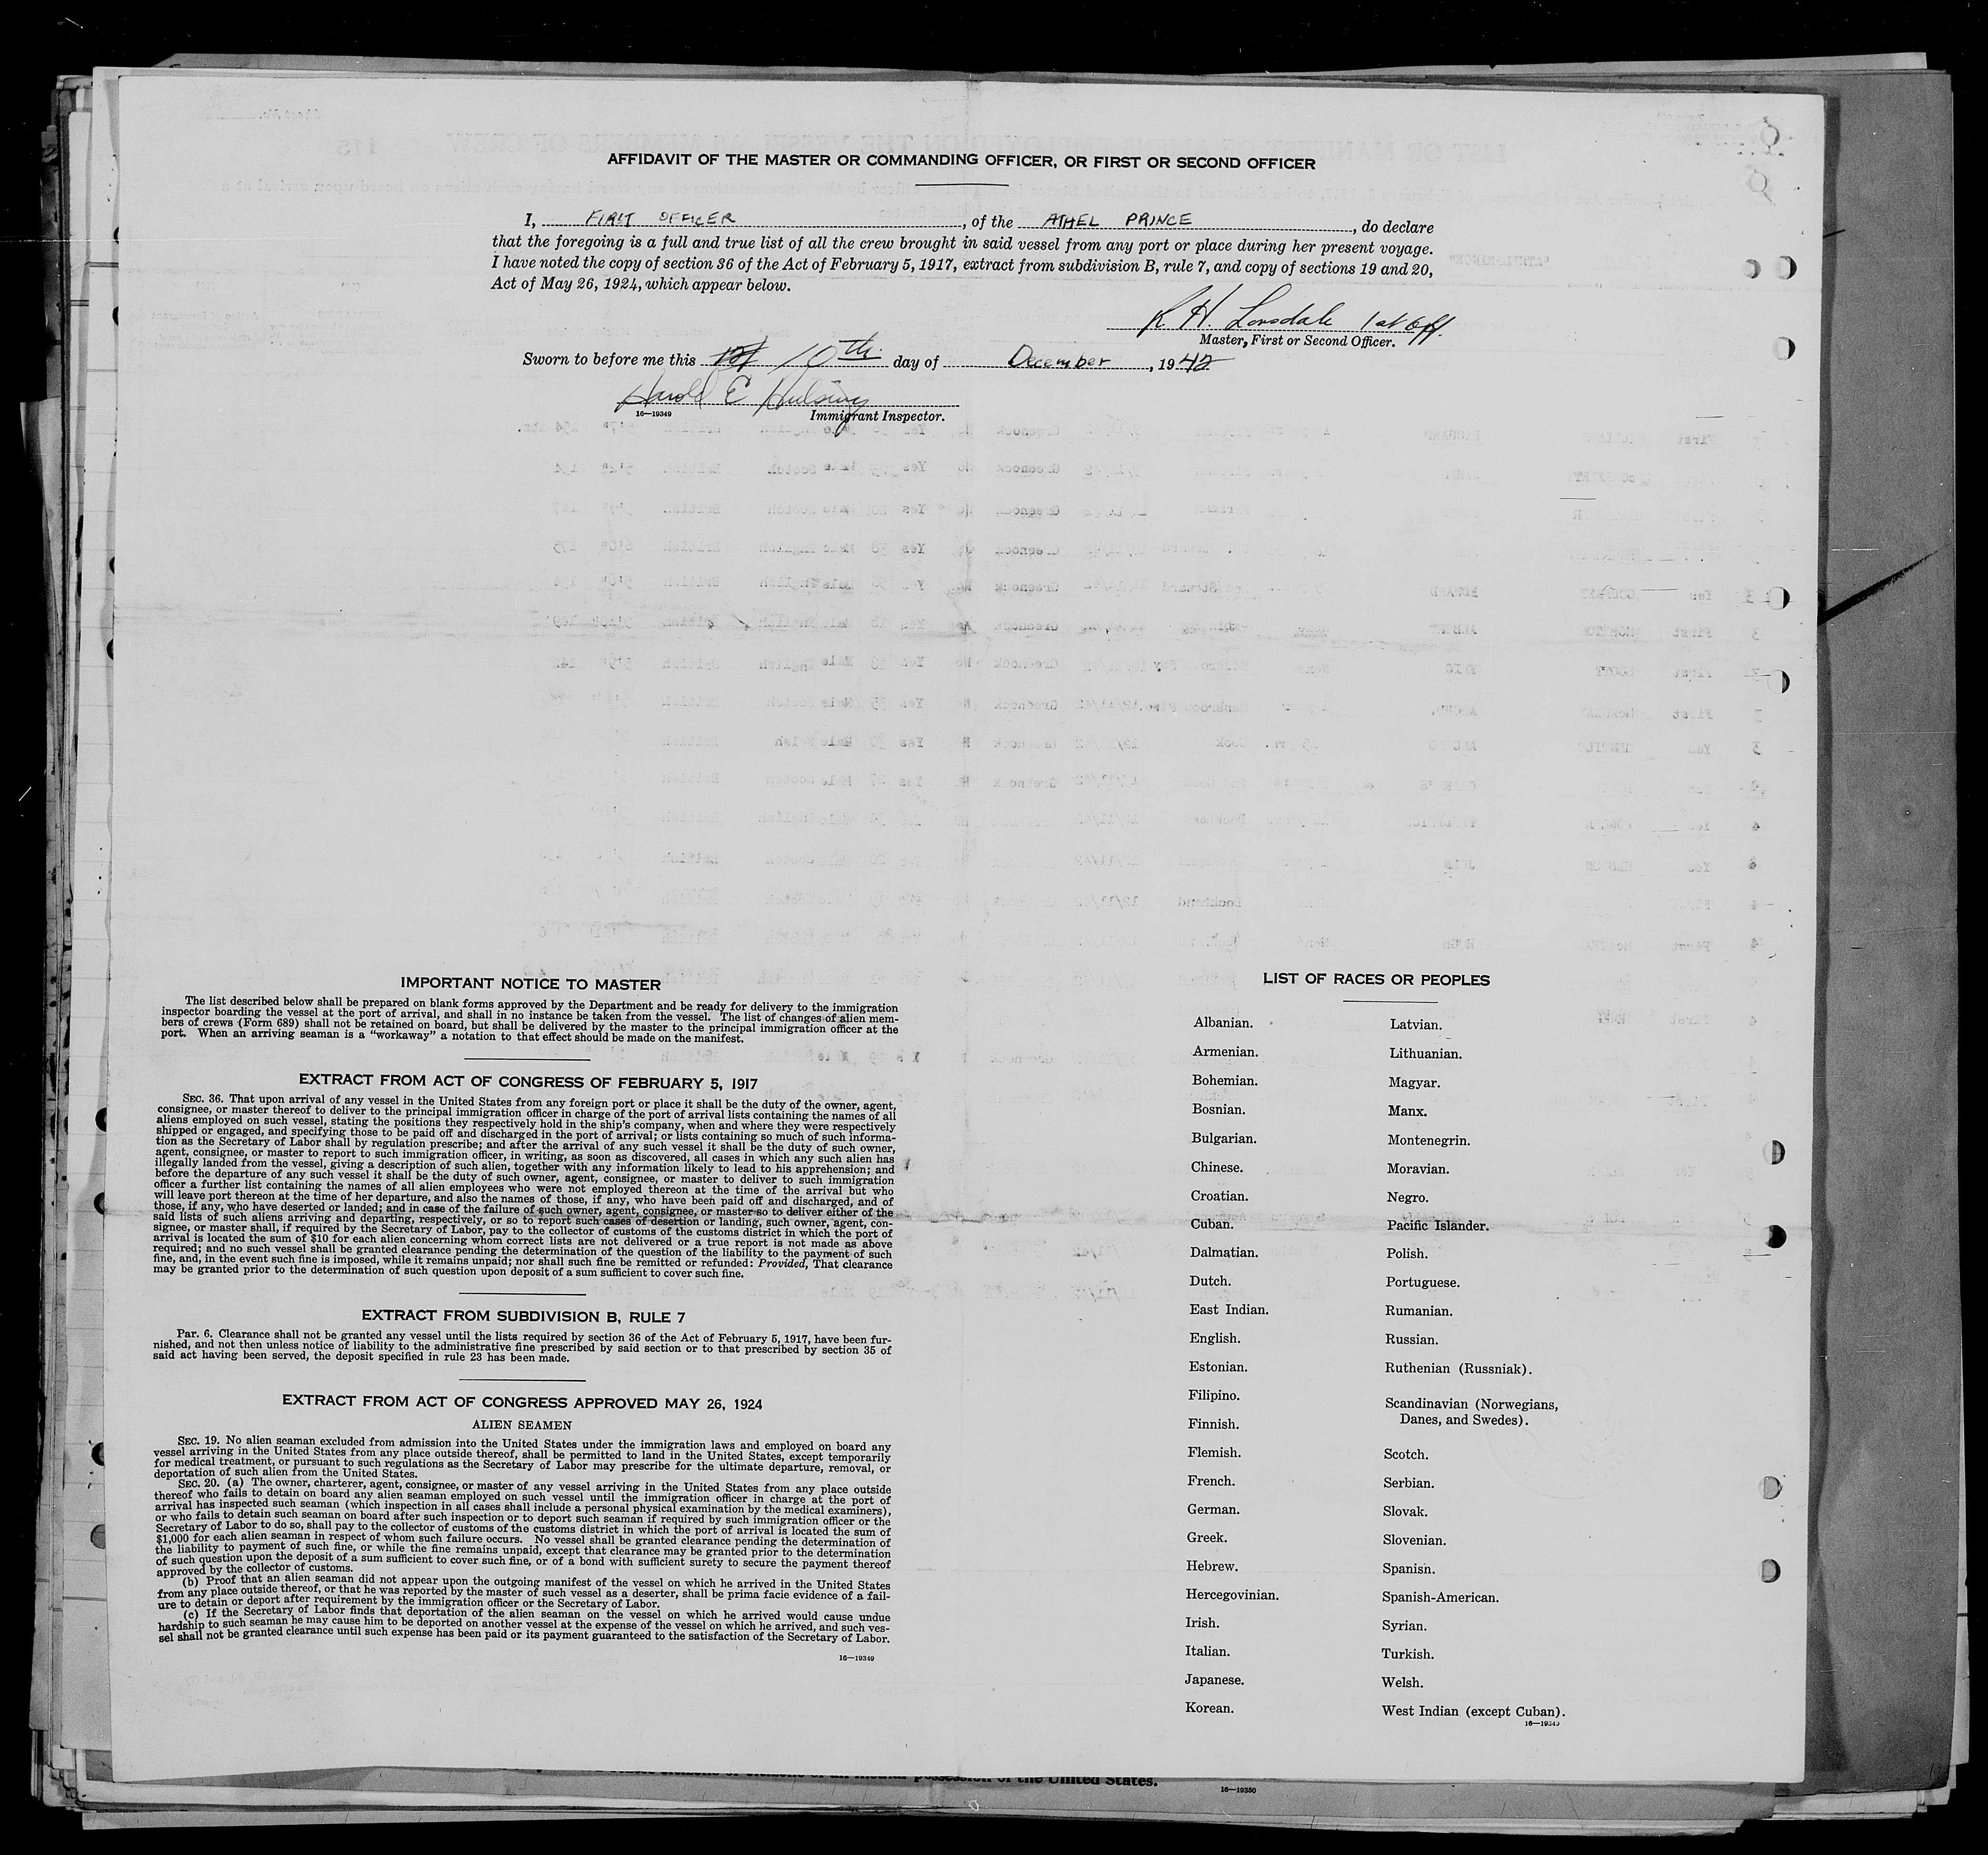 AFFIDAVIT OF THE MASTER OR COMMANDING OFFICER, OR FIRST OR SECOND OFFICER
I, FIRST OFFICER, of the ATHEL PRINCE, do declare
that the foregoing is a full and true list of all the crew brought in said vessel from any port or place during her present voyage.
I have noted the copy of section 36 of the Act of February 5, 1917, extract from subdivision B, rule 7, and copy of sections 19 and 20,
Act of May 26, 1924, which appear below.
R H. Lonsdale 1st Off.
Master, First or Second Officer.
Sworn to before me this 10th day of December, 1942
Harold E
16—19349 Immigrant Inspector.
IMPORTANT NOTICE TO MASTER
The list described below shall be prepared on blank forms approved by the Department and be ready for delivery to the immigration
inspector boarding the vessel at the port of arrival, and shall in no instance be taken from the vessel. The list of changes of alien mem-
bers of crews (Form 689) shall not be retained on board, but shall be delivered by the master to the principal immigration officer at the
port. When an arriving seaman is a “workaway” a notation to that effect should be made on the manifest.
EXTRACT FROM ACT OF CONGRESS OF FEBRUARY 5, 1917
SEC. 36. That upon arrival of any vessel in the United States from any foreign port or place it shall be the duty of the owner, agent,
consignee, or master thereof to deliver to the principal immigration officer in charge of the port of arrival lists containing the names of all
aliens employed on such vessel, stating the positions they respectively hold in the ship's company, when and where they were respectively
shipped or engaged, and specifying those to be paid off and discharged in the port of arrival; or lists containing so much of such informa-
tion as the Secretary of Labor shall by regulation prescribe; and after the arrival of any such vessel it shall be the duty of such owner,
agent, consignee, or master to report to such immigration officer, in writing, as soon as discovered, all cases in which any such alien has
illegally landed from the vessel, giving a description of such alien, together with any information likely to lead to his apprehension; and
before the departure of any such vessel it shall be the duty of such owner, agent, consignee, or master to deliver to such immigration
officer a further list containing the names of all alien employees who were not employed thereon at the time of the arrival but who
will leave port thereon at the time of her departure, and also the names of those, if any, who have been paid off and discharged, and of
those, if any, who have deserted or landed; and in case of the failure of such owner, agent, consignee, or master so to deliver either of the
said lists of such aliens arriving and departing, respectively, or so to report such cases of desertion or landing, such owner, agent, con-
signee, or master shall, if required by the Secretary of Labor, pay to the collector of customs of the customs district in which the port of
arrival is located the sum of $10 for each alien concerning whom correct lists are not delivered or a true report is not made as above
required; and no such vessel shall be granted clearance pending the determination of the question of the liability to the payment of such
fine, and, in the event such fine is imposed, while it remains unpaid; nor shall such fine be remitted or refunded: Provided, That clearance
may be granted prior to the determination of such question upon deposit of a sum sufficient to cover such fine.
EXTRACT FROM SUBDIVISION B, RULE 7
Par. 6. Clearance shall not be granted any vessel until the lists required by section 36 of the Act of February 5, 1917, have been fur-
nished, and not then unless notice of liability to the administrative fine prescribed by said section or to that prescribed by section 35 of
said act having been served, the deposit specified in rule 23 has been made.
EXTRACT FROM ACT OF CONGRESS APPROVED MAY 26, 1924
ALIEN SEAMEN
SEC. 19. No alien seaman excluded from admission into the United States under the immigration laws and employed on board any
vessel arriving in the United States from any place outside thereof, shall be permitted to land in the United States, except temporarily
for medical treatment, or pursuant to such regulations as the Secretary of Labor may prescribe for the ultimate departure, removal, or
deportation of such alien from the United States.
SEC. 20. (a) The owner, charterer, agent, consignee, or master of any vessel arriving in the United States from any place outside
thereof who fails to detain on board any alien seaman employed on such vessel until the immigration officer in charge at the port of
arrival has inspected such seaman (which inspection in all cases shall include a personal physical examination by the medical examiners),
or who fails to detain such seaman on board after such inspection or to deport such seaman if required by such immigration officer or the
Secretary of Labor to do so, shall pay to the collector of customs of the customs district in which the port of arrival is located the sum of
$1,000 for each alien seaman in respect of whom such failure occurs. No vessel shall be granted clearance pending the determination of
the liability to payment of such fine, or while the fine remains unpaid, except that clearance may be granted prior to the determination
of such question upon the deposit of a sum sufficient to cover such fine, or of a bond with sufficient surety to secure the payment thereof
approved by the collector of customs.
(b) Proof that an alien seaman did not appear upon the outgoing manifest of the vessel on which he arrived in the United States
from any place outside thereof, or that he was reported by the master of such vessel as a deserter, shall be prima facie evidence of a fail-
ure to detain or deport after requirement by the immigration officer or the Secretary of Labor.
(c) If the Secretary of Labor finds that deportation of the alien seaman on the vessel on which he arrived would cause undue
hardship to such seaman he may cause him to be deported on another vessel at the expense of the vessel on which he arrived, and such ves-
sel shall not be granted clearance until such expense has been paid or its payment guaranteed to the satisfaction of the Secretary of Labor.
16—19349
LIST OF RACES OR PEOPLES
Albanian.
Armenian.
Bohemian.
Bosnian.
Bulgarian.
Chinese.
Croatian.
Cuban.
Dalmatian.
Dutch.
East Indian.
English.
Estonian.
Filipino.
Finnish.
Flemish.
French.
German.
Greek.
Hebrew.
Hercegovinian.
Irish.
Italian.
Japanese.
Korean.
Latvian.
Lithuanian.
Magyar.
Manx.
Montenegrin.
Moravian.
Negro.
Pacific Islander.
Polish.
Portuguese.
Rumanian.
Russian.
Ruthenian (Russniak).
Scandinavian (Norwegians,
Danes, and Swedes).
Scotch.
Serbian.
Slovak.
Slovenian.
Spanish.
Spanish-American.
Syrian.
Turkish.
Welsh.
West Indian (except Cuban).
16—19349
of the United States.
16—19350